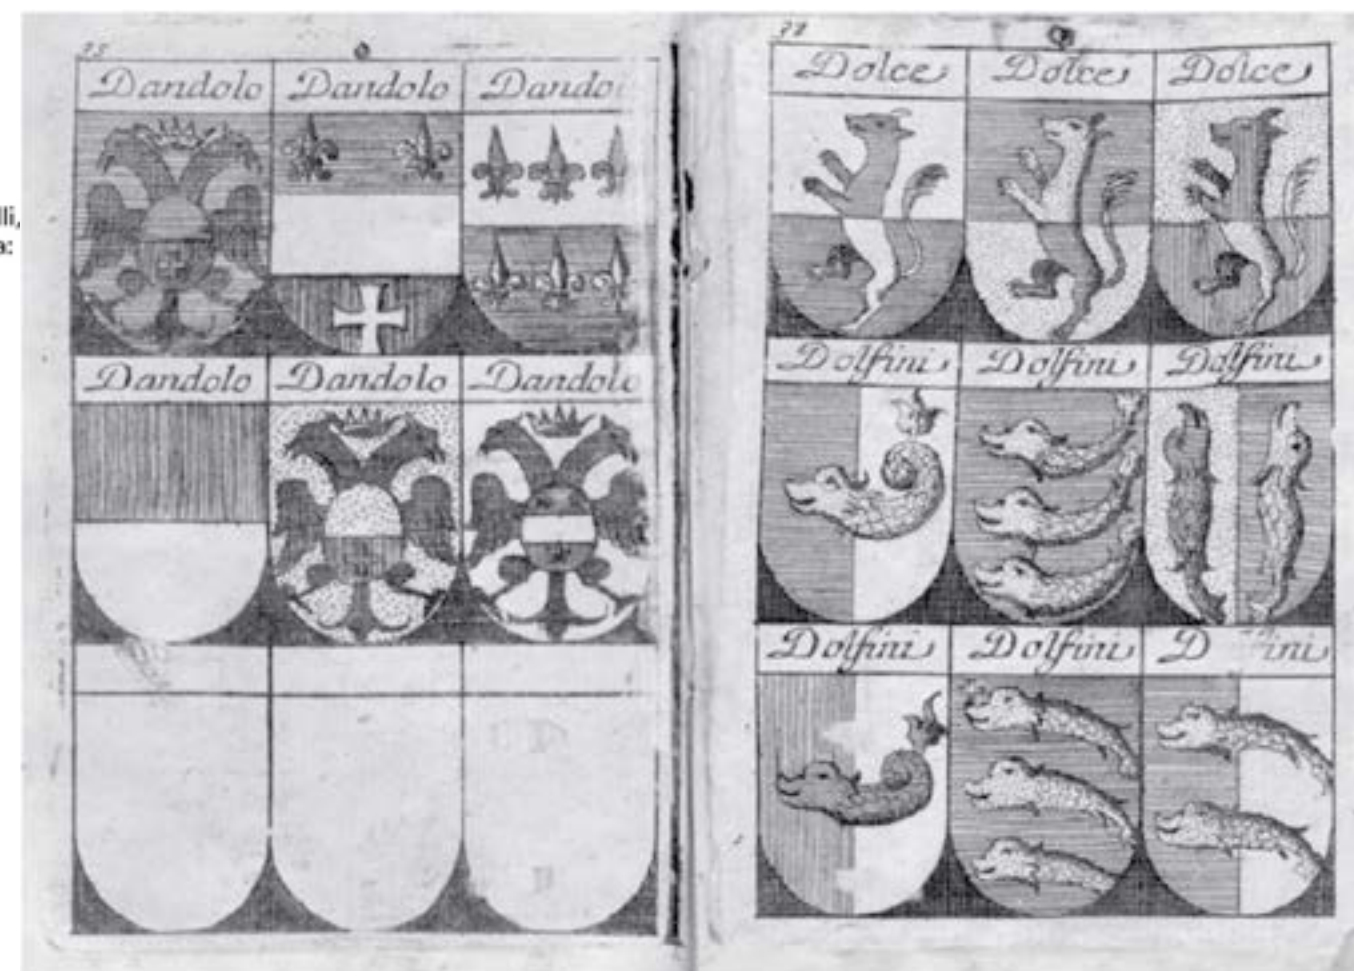 lli,
a:
Dandolo Dandolo Dando
Dandolo Dandolo Dandolo
Dolce Dolce Dolce
Dolfini Dolfini Dolfini
Dolfini Dolfini D ini